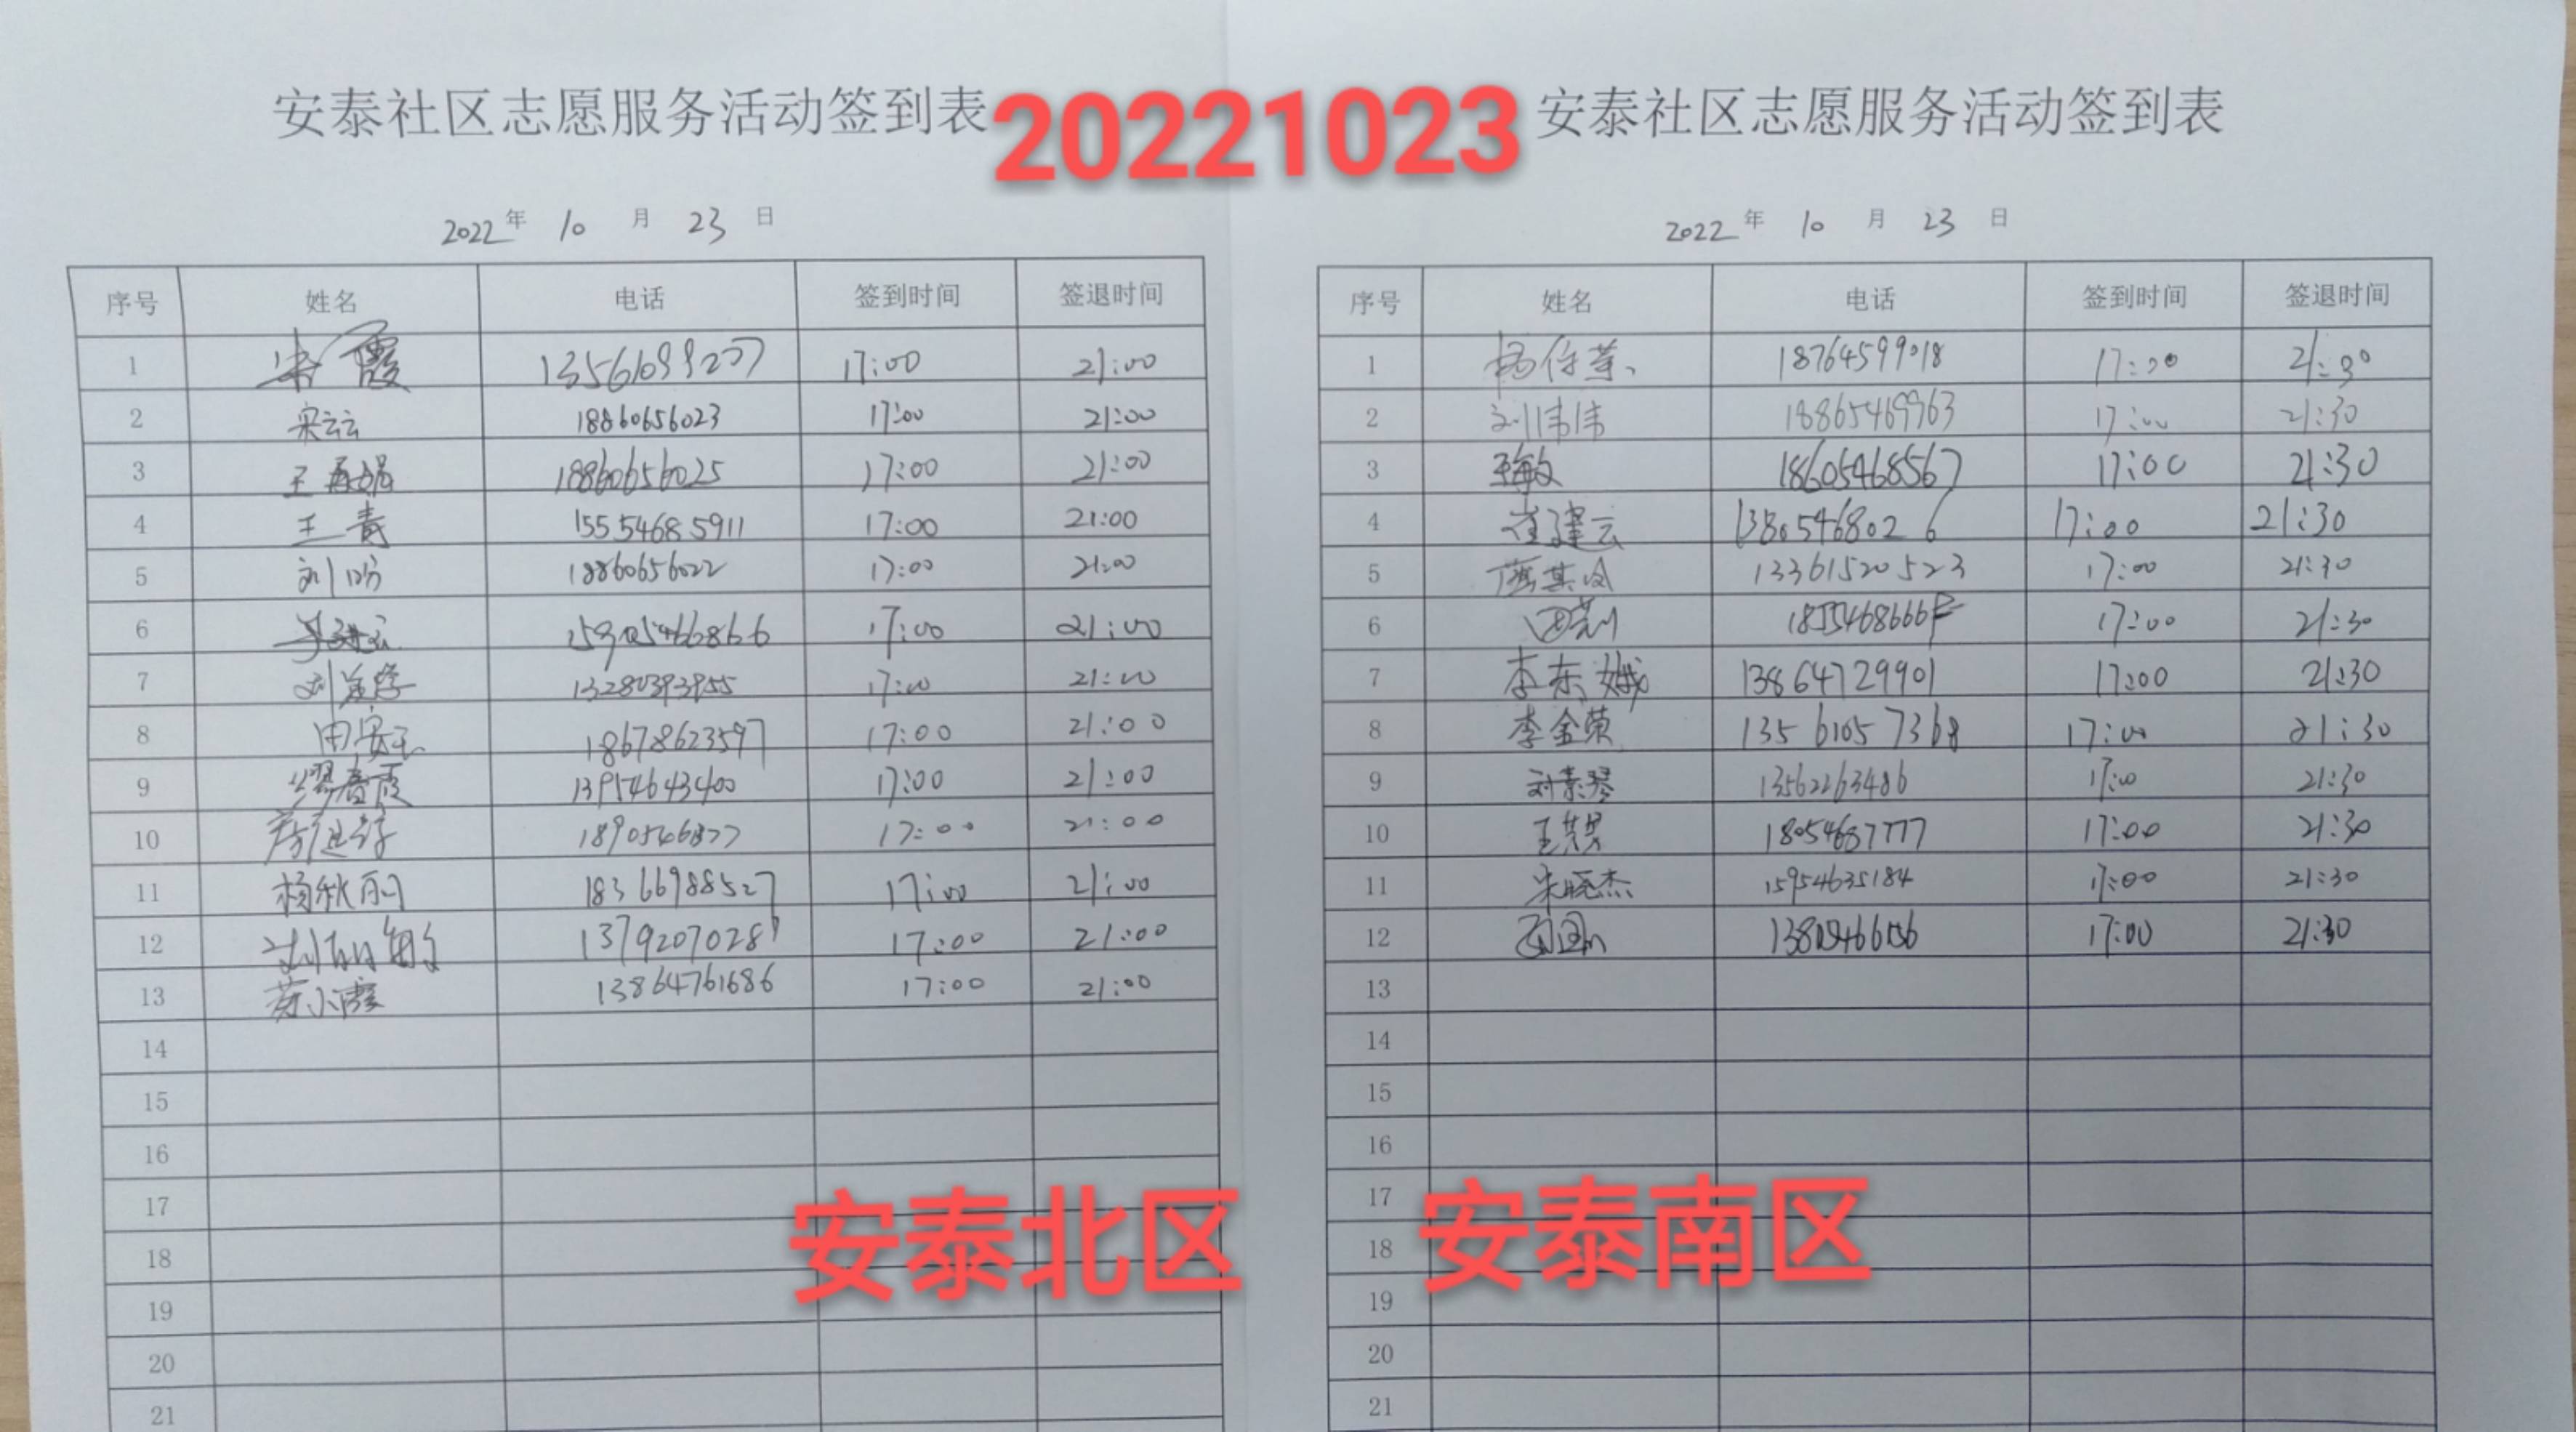 安泰社区志愿服务活动签到表
20221023
安泰社区志愿服务活动签到表
2022年 10 月 23 日
序号 姓名 电话 签到时间 签退时间
1 宋霞 17:00 21:00
2 宋云云 18860656023 17:00 21:00
3 王 18860656025 17:00 21:00
4 王青 15554685911 17:00 21:00
5 刘 18860656022 17:00 21:00
6 17:00 21:00
7 刘 17:00 21:00
8 田 18678623597 17:00 21:00
9 春霞 13954643400 17:00 21:00
10 17:00 21:00
11 杨秋丽 18366988527 17:00 21:00
12 刘 17:00 21:00
13 小霞 13864761686 17:00 21:00
14
15
16
17
18
19
20
21
安泰北区
2022年 10 月 23 日
序号 姓名 电话 签到时间 签退时间
1 杨 18764599018 17:00 21:30
2 刘伟伟 18865469963 17:00 21:30
3 王敏 18605468567 17:00 21:30
4 崔建云 13805468026 17:00 21:30
5 13361520523 17:00 21:30
6 17:00 21:30
7 李东娥 13864729901 17:00 21:30
8 李金荣 13561057368 17:00 21:30
9 刘素琴 13562263486 17:00 21:30
10 王 18054687777 17:00 21:30
11 朱晓杰 15954635184 17:00 21:30
12 17:00 21:30
13
14
15
16
17
18
19
20
21
安泰南区